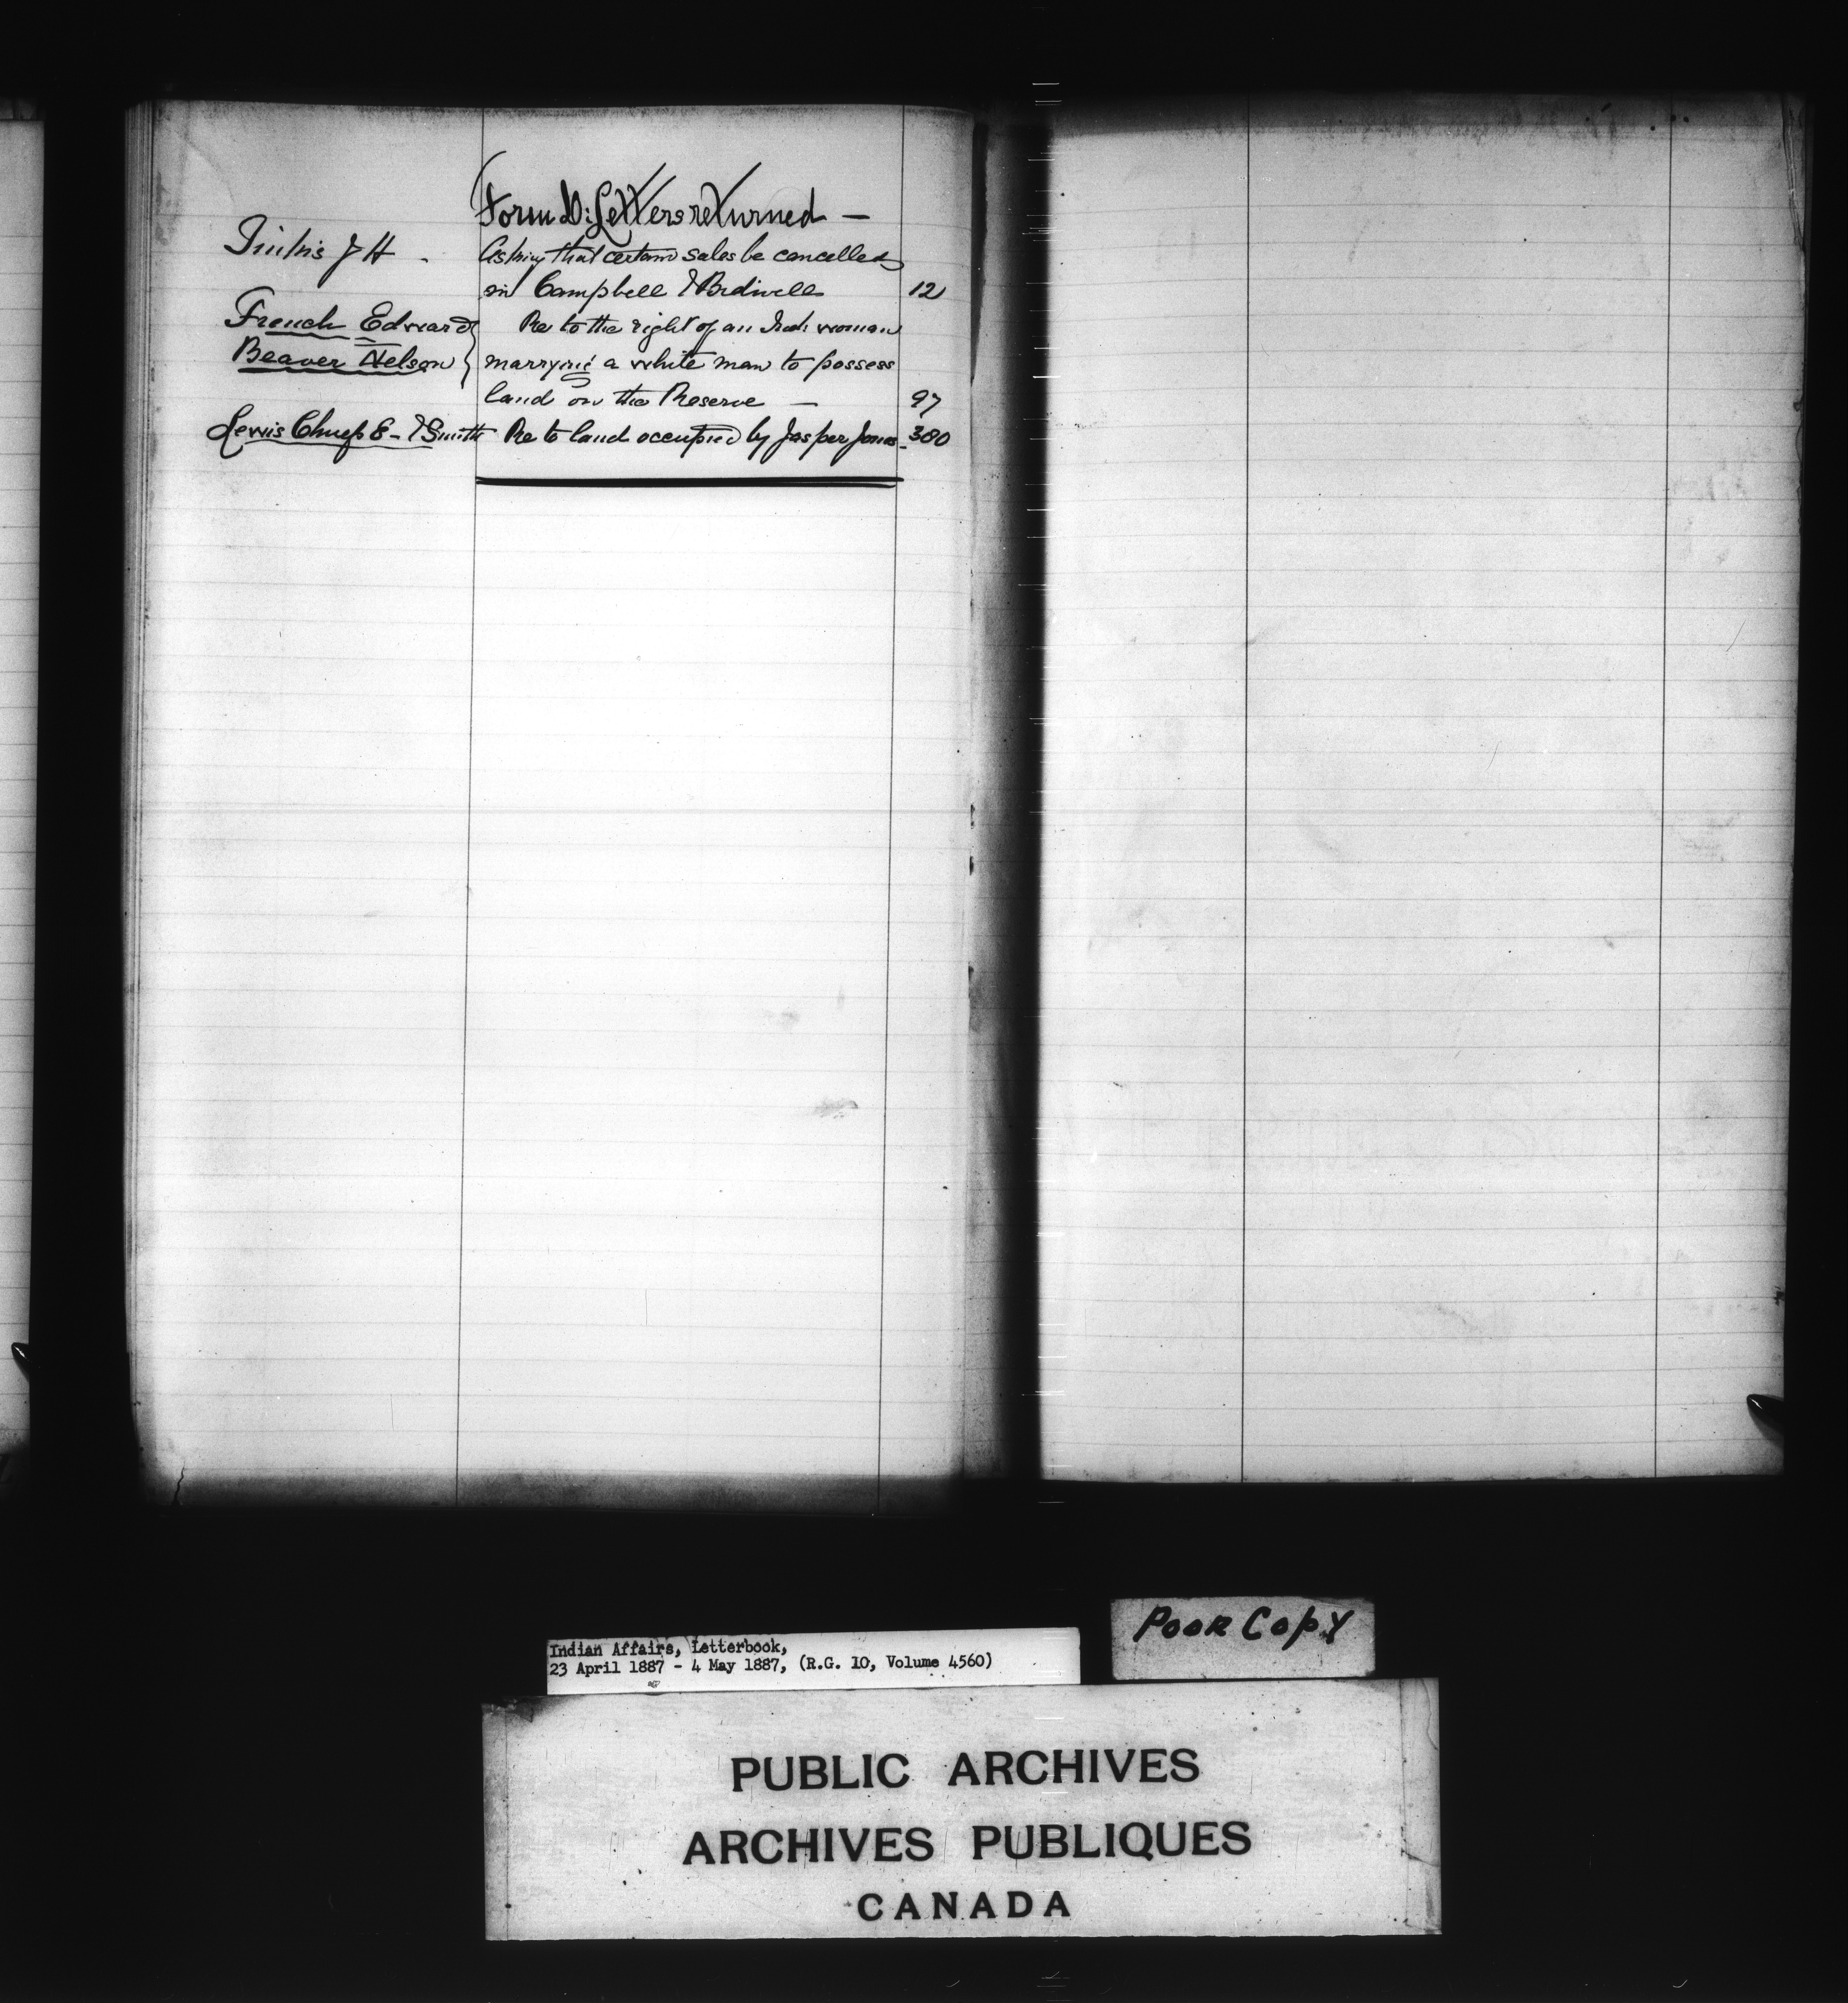 Form D: Letters returned —
J H . Asking that certain sales be cancelled
in Campbell & Bidwell 12
French Edward } Re to the right of an Inds woman
Beaver Nelson } marrying a white man to possess
land on the Reserve — 97
Lewis Chief E - & Smith Re to land occupied by Jasper Jones - 380
Poor Copy
Indian Affairs, Letterbook,
23 April 1887 - 4 May 1887, (R.G. 10, Volume 4560)
PUBLIC ARCHIVES
ARCHIVES PUBLIQUES
CANADA